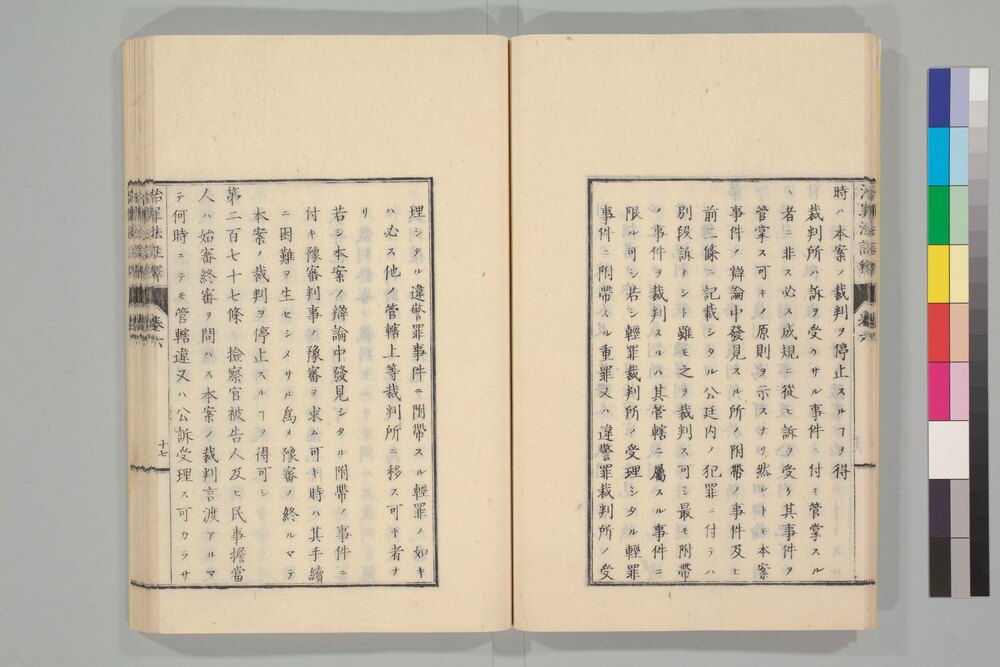 時ハ本案ノ裁判ヲ停止スルヿヲ得
裁判所ハ訴ヲ受ケサル事件ニ付キ管掌スル
者ニ非ス必ス成規ニ從ヒ訴ヲ受ケ其事件ヲ
管掌ス可キノ原則ヲ示スナリ然レトモ本案
事件ノ辯論中發見スル所ノ附帶ノ事件及ヒ
前二條ニ記載シタル公廷内ノ犯罪ニ付テハ
別段訴ナシト雖モ之ヲ裁判ス可シ最モ附帶
ノ事件ヲ裁判スルハ其管轄ニ屬スル事件ニ
限ル可シ若シ輕罪裁判所ノ受理シタル輕罪
事件ニ附帶スル重罪又ハ違警罪裁判所ノ受
理シタル違警罪事件ニ附帶スル輕罪ノ如キ
ハ必ス他ノ管轄上等裁判所ニ移ス可キ者ナ
リ
若シ本案ノ辯論中發見シタル附帶ノ事件ニ
付キ豫審判事ノ豫審ヲ求ム可キ時ハ其手續
ニ困難ヲ生セシメサル爲メ豫審ノ終ルマテ
本案ノ裁判ヲ停止スルヿヲ得可シ
第二百七十七條 檢察官被告人及ヒ民事擔當
人ハ始審終審ヲ問ハス本案ノ裁判言渡アルマ
テ何時ニテモ管轄違又ハ公訴受理ス可カラサ
治罪法註釋 卷六
十七